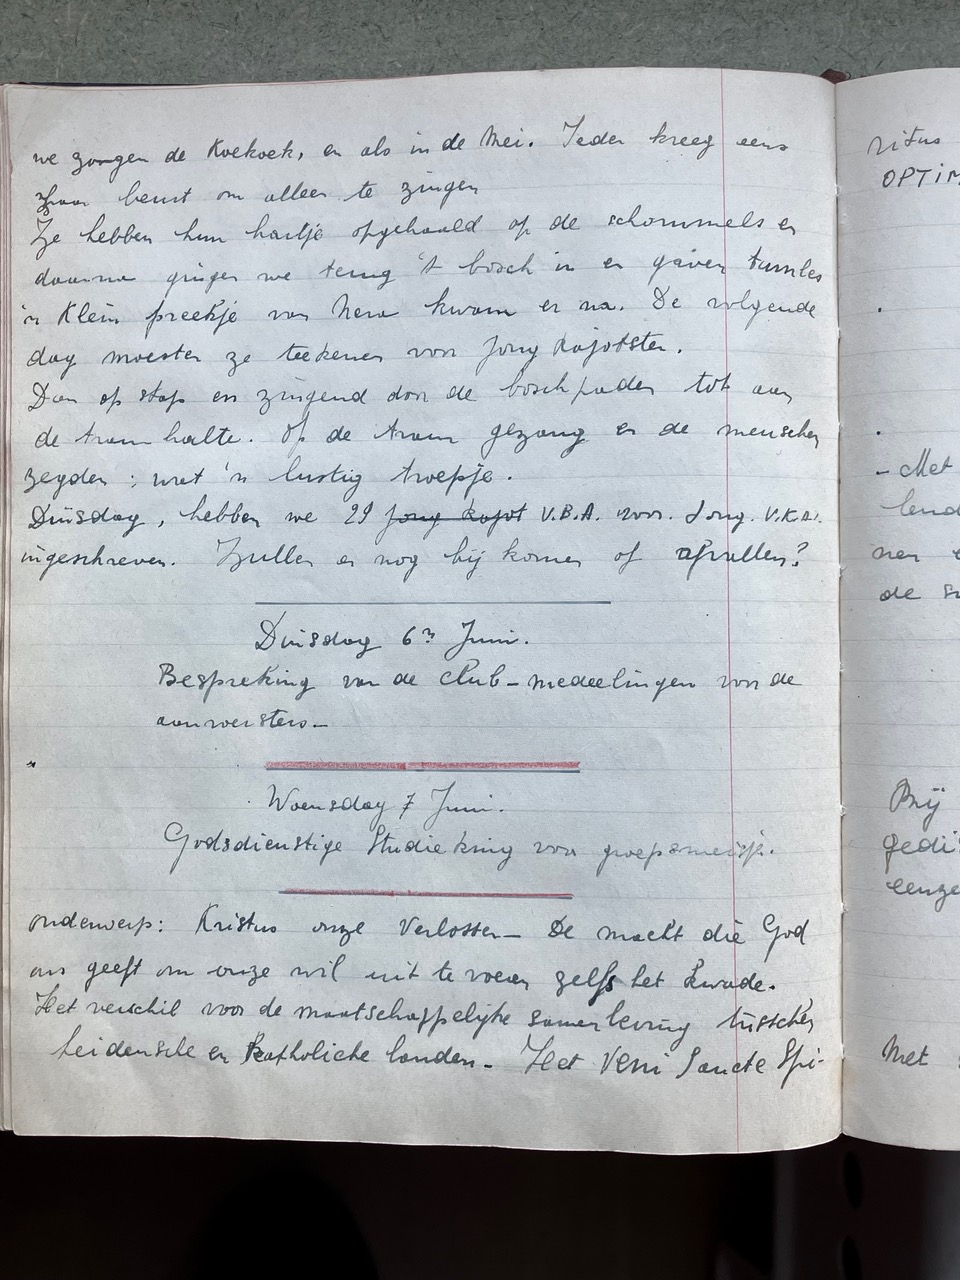 we zongen de Koekoek, en als in de Mei. Ieder kreeg eens
haar beurt om alleen te zingen
Ze hebben hun hartje opgehaald op de schommels en
daarna gingen we terug 't bosch in en gaven tumles
'n Klein preekje van Hera kwam er na. De volgende
dag moesten ze teekenen voor Jong Kajotster.
Dan op stap en zingend door de boschpaden tot aan
de tramhalte. Op de tram gezang en de menschen
zeyden : wat 'n lustig troepje.
Dinsdag, hebben we 29 jong kajot V.B.A. voor Jong. V.K.A.
ingeschreven. Zullen er nog bij komen of afvallen?
Dinsdag 6n Juni.
Bespreking van de club-medeelingen voor de
aanwersters-
Woensdag 7 Juni.
Godsdienstige Studiekring voor groepsmeisje.
onderwerp: Kristus onze Verlosser- De macht die God
ons geeft om onze wil uit te voeren zelfs het kwade.
Het verschil voor de maatschappelijke samenleving tusschen
heidensche en katholieke landen- Het Veni Sancte Spi-
ritus
OPTIM
- Met
lend
nen
de
Bij
gedi
eenge
Met